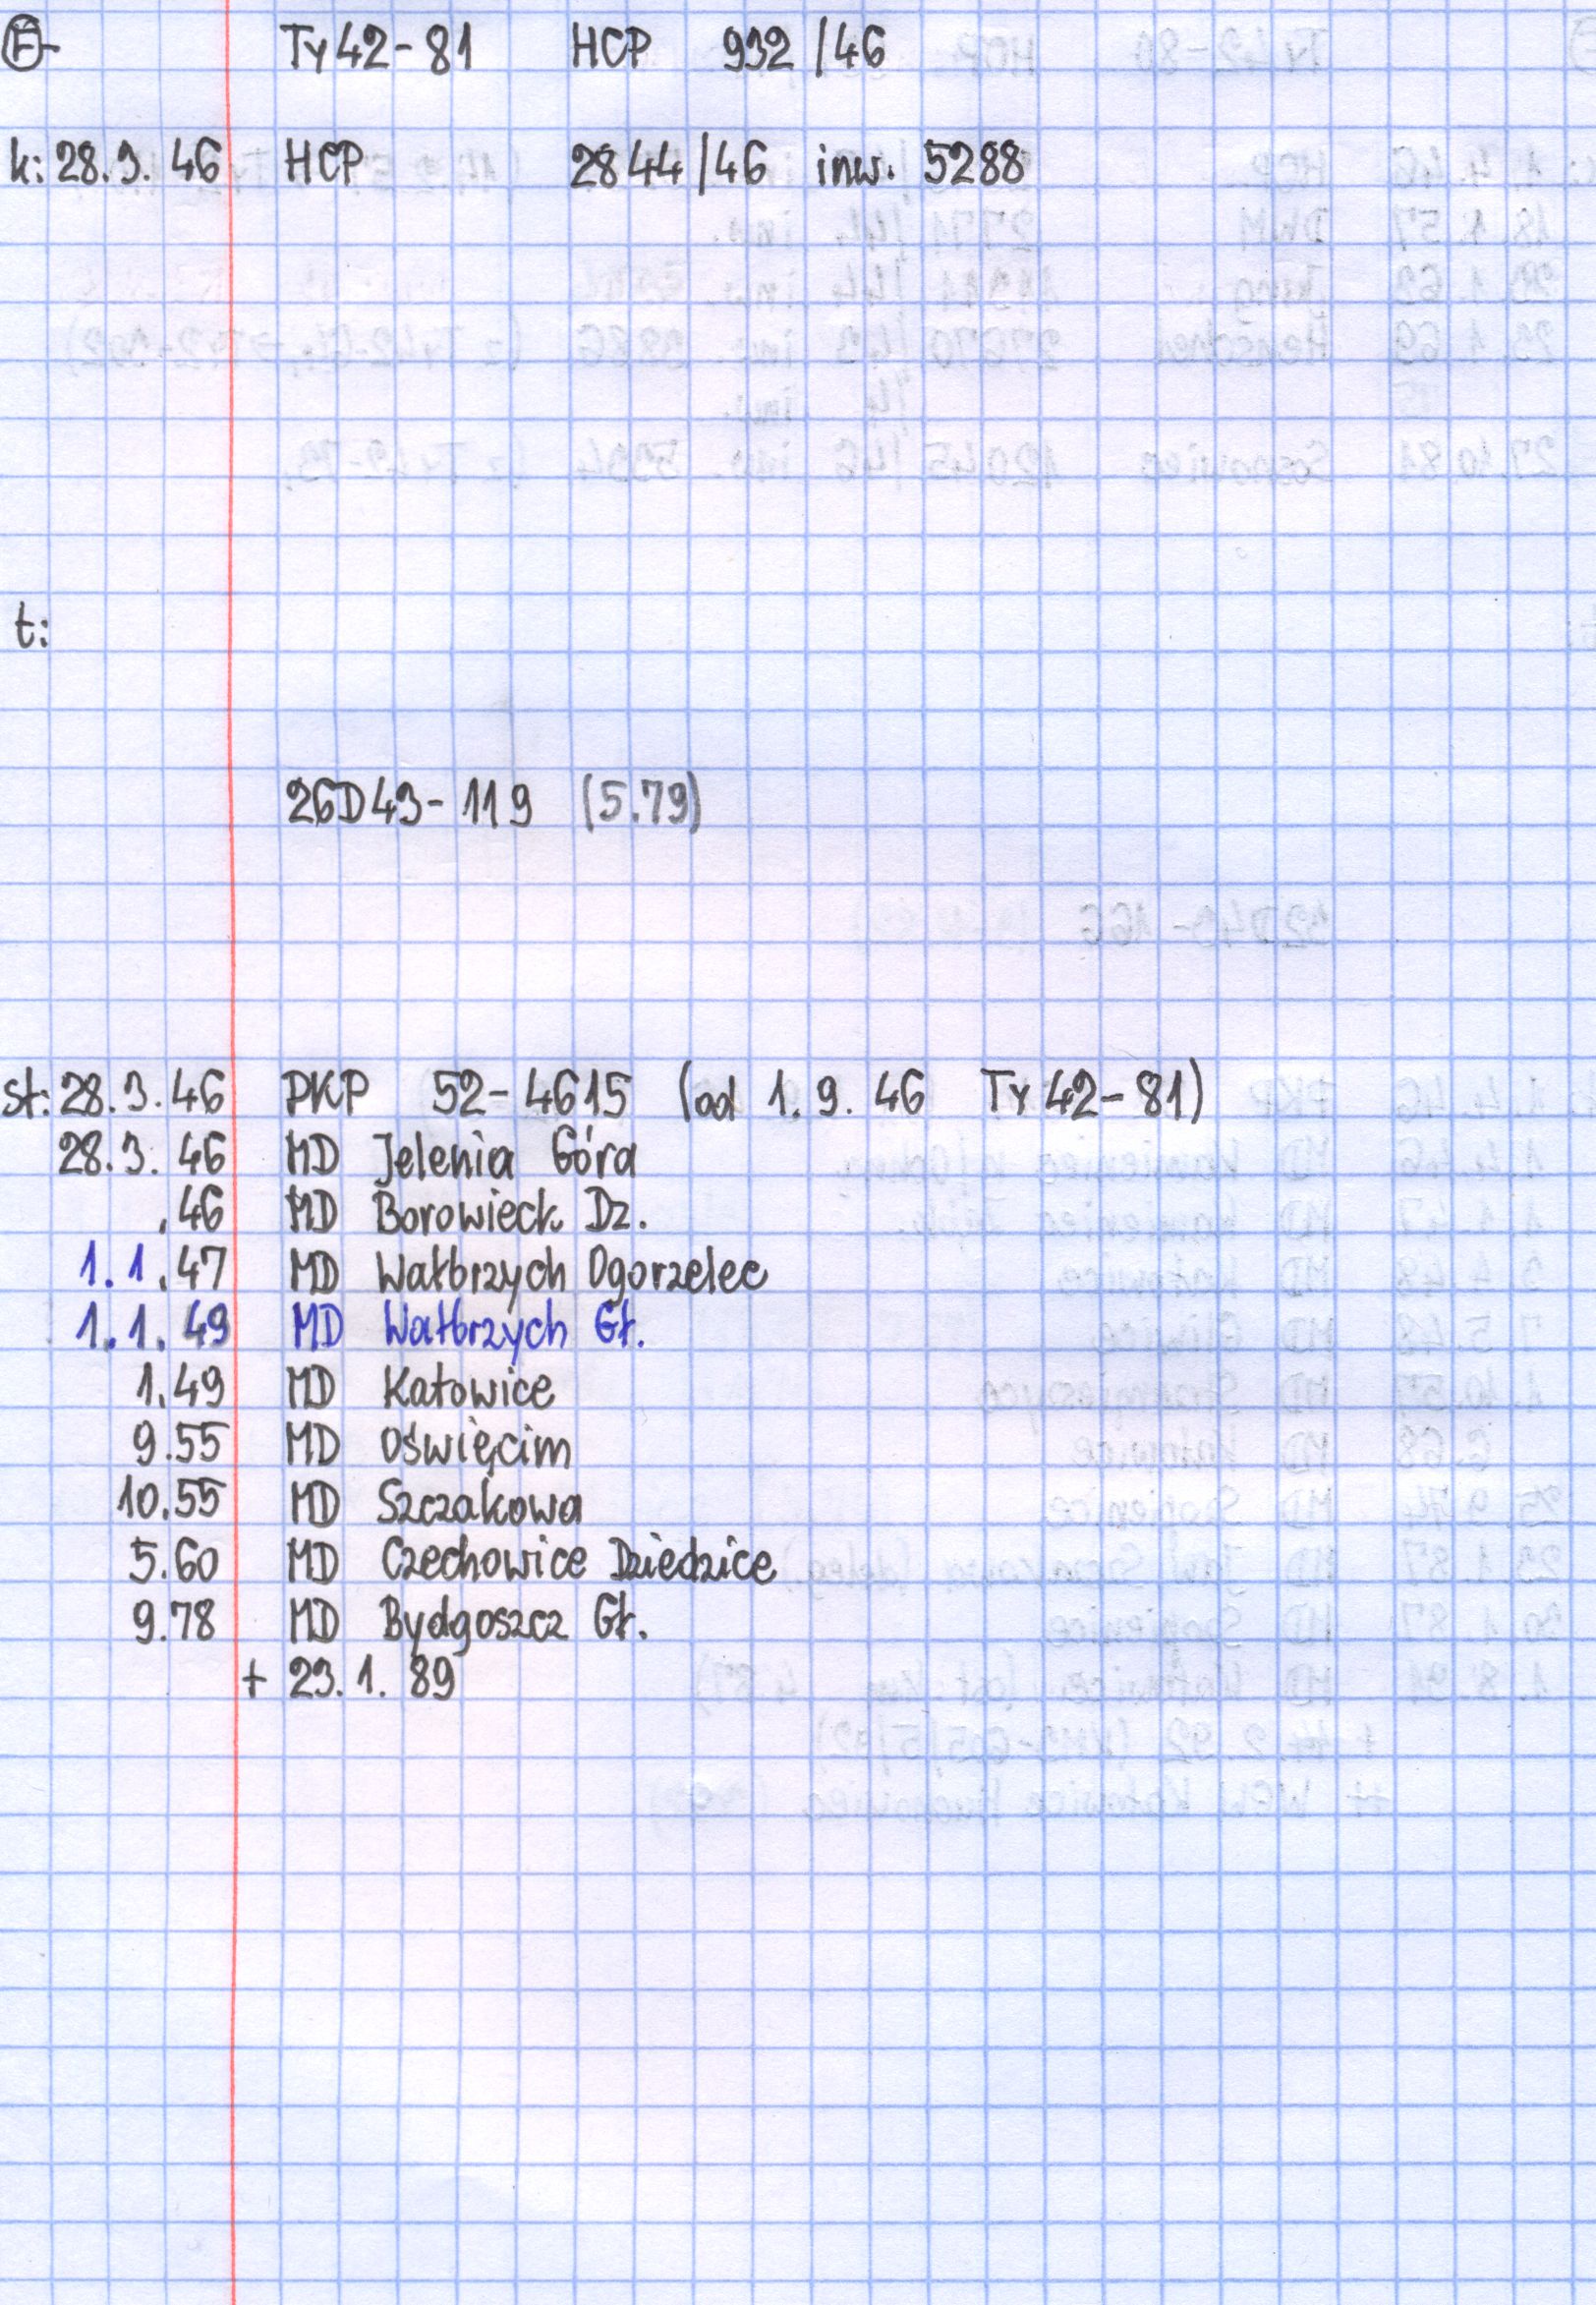 Ⓕ- Ty42-81 HCP 932/46
k: 28.3.46 HCP 2844/46 inw. 5288
t:
26D43-119 (5.79)
st: 28.3.46 PKP 52-4615 (od 1.9.46 Ty42-81)
28.3.46 MD Jelenia Góra
.46 MD Borowieck Dz.
1.1.47 MD Wałbrzych Ogorzelec
1.1.49 MD Wałbrzych Gł.
1.49 MD Katowice
9.55 MD Oświęcim
10.55 MD Szczakowa
5.60 MD Czechowice Dziedzice
9.78 MD Bydgoszcz Gł.
+ 23.1.89